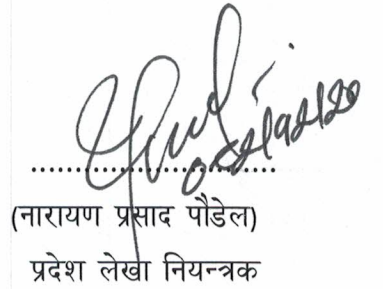 ....................................
(नारायण प्रसाद पौडेल)
प्रदेश लेखा नियन्त्रक